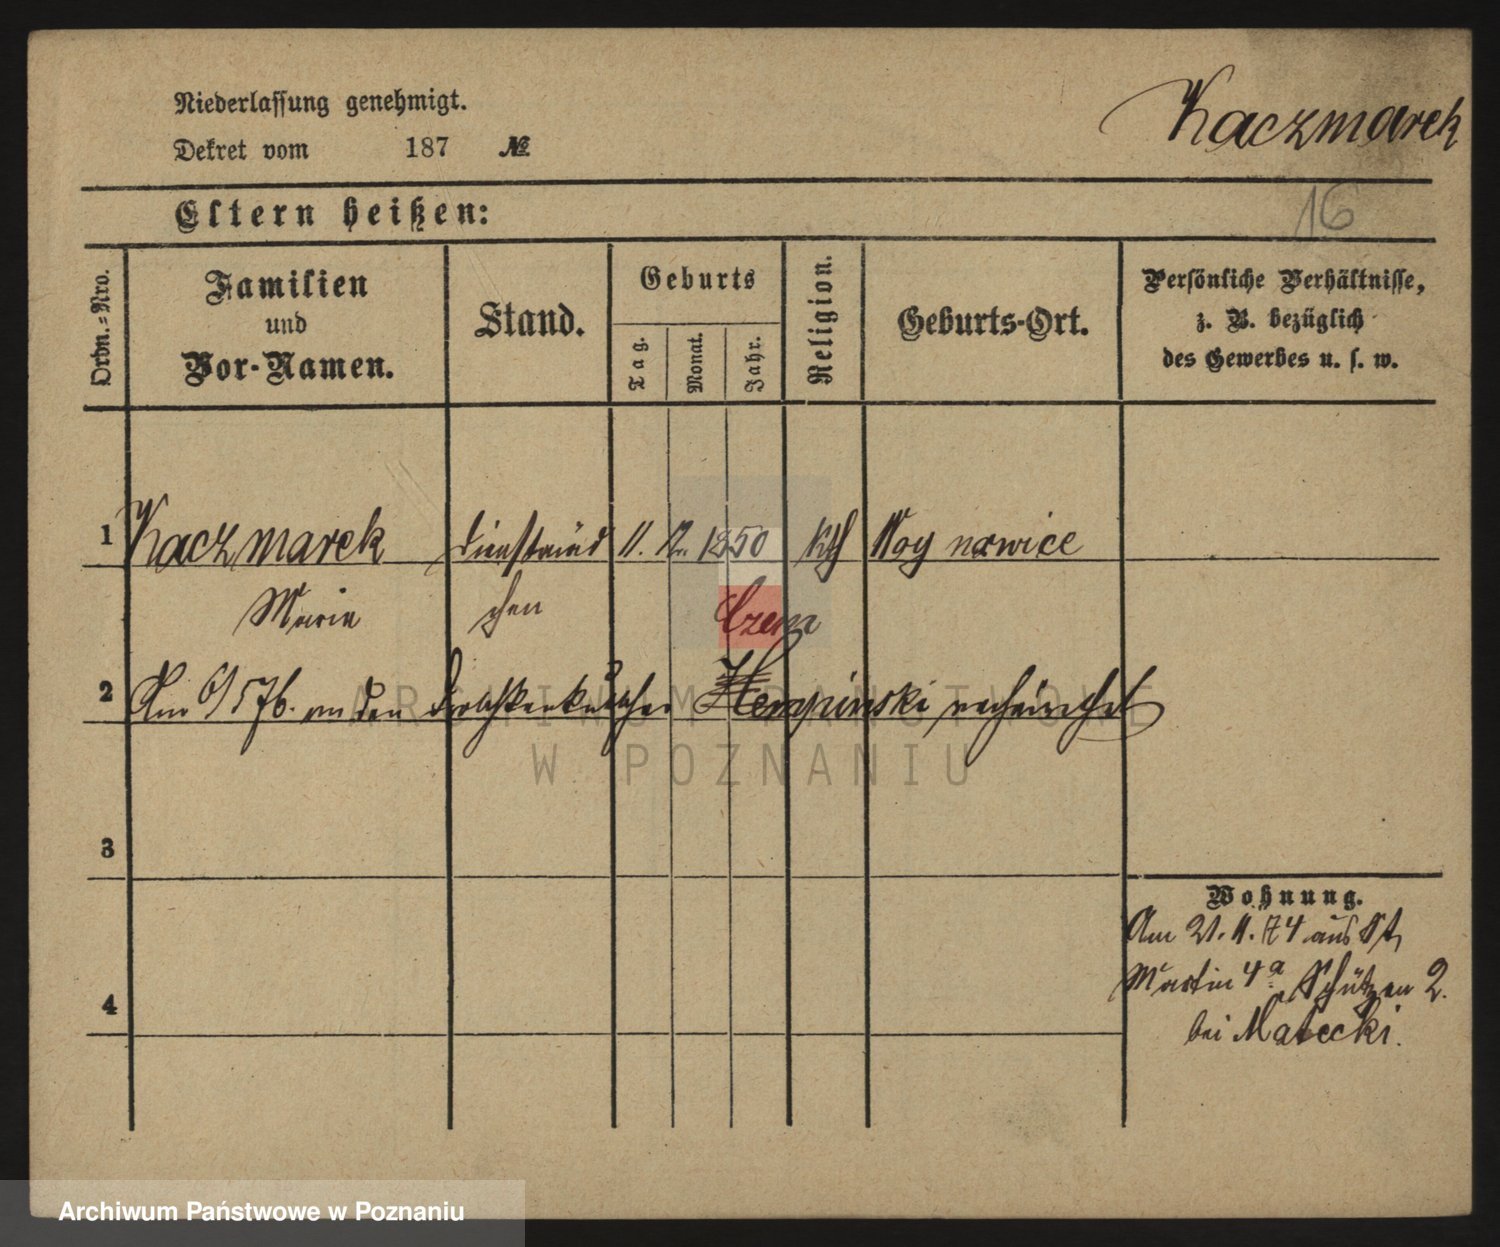 Kaczmarek
Niederlassung genehmigt.
Dekret vom 187 №
16
Eltern heißen:
Ordn.-Nro.
Familien
und
Vor-Namen.
Stand.
Geburts
Tag.
Monat.
Jahr.
Religion.
Geburts-Ort.
Persönliche Verhältnisse,
z. B. bezüglich
des Gewerbes u. s. w.
1 Kaczmarek Dienstmäd 11. 12. 1850 kth Woynowice
Marie chen
Czem
2 Am 6/5 76. an den Droschkenkutscher Hempinski verheirathet
3
4
Wohnung.
Am 21. 11. 74 aus St.
Martin 4a Schützen 2.
bei Malecki.
ARCHIWUM PAŃSTWOWE
W POZNANIU
Archiwum Państwowe w Poznaniu